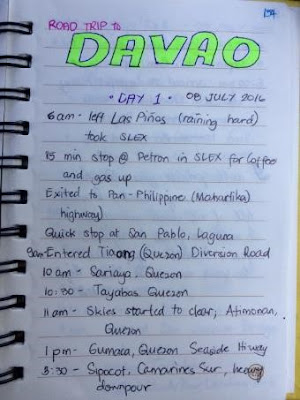 ROAD TRIP to
DAVAO
• DAY 1 • 08 JULY 2016
6am - left Las Piñas (raining hard)
took SLEX
15 min stop @ Petron in SLEX for Coffee
and gas up
Exited to Pan-Philippine (Maharlika)
highway)
Quick stop at San Pablo, Laguna
9am - Entered Tiaong (Quezon) Diversion Road
10 am - Sariaya, Quezon
10:30 - Tayabas Quezon
11am - Skies started to clear; Atimonan,
Quezon
1pm - Gumaca, Quezon Seaside Hiway
3:30 - Sipocot, Camarines Sur, heavy
downpour